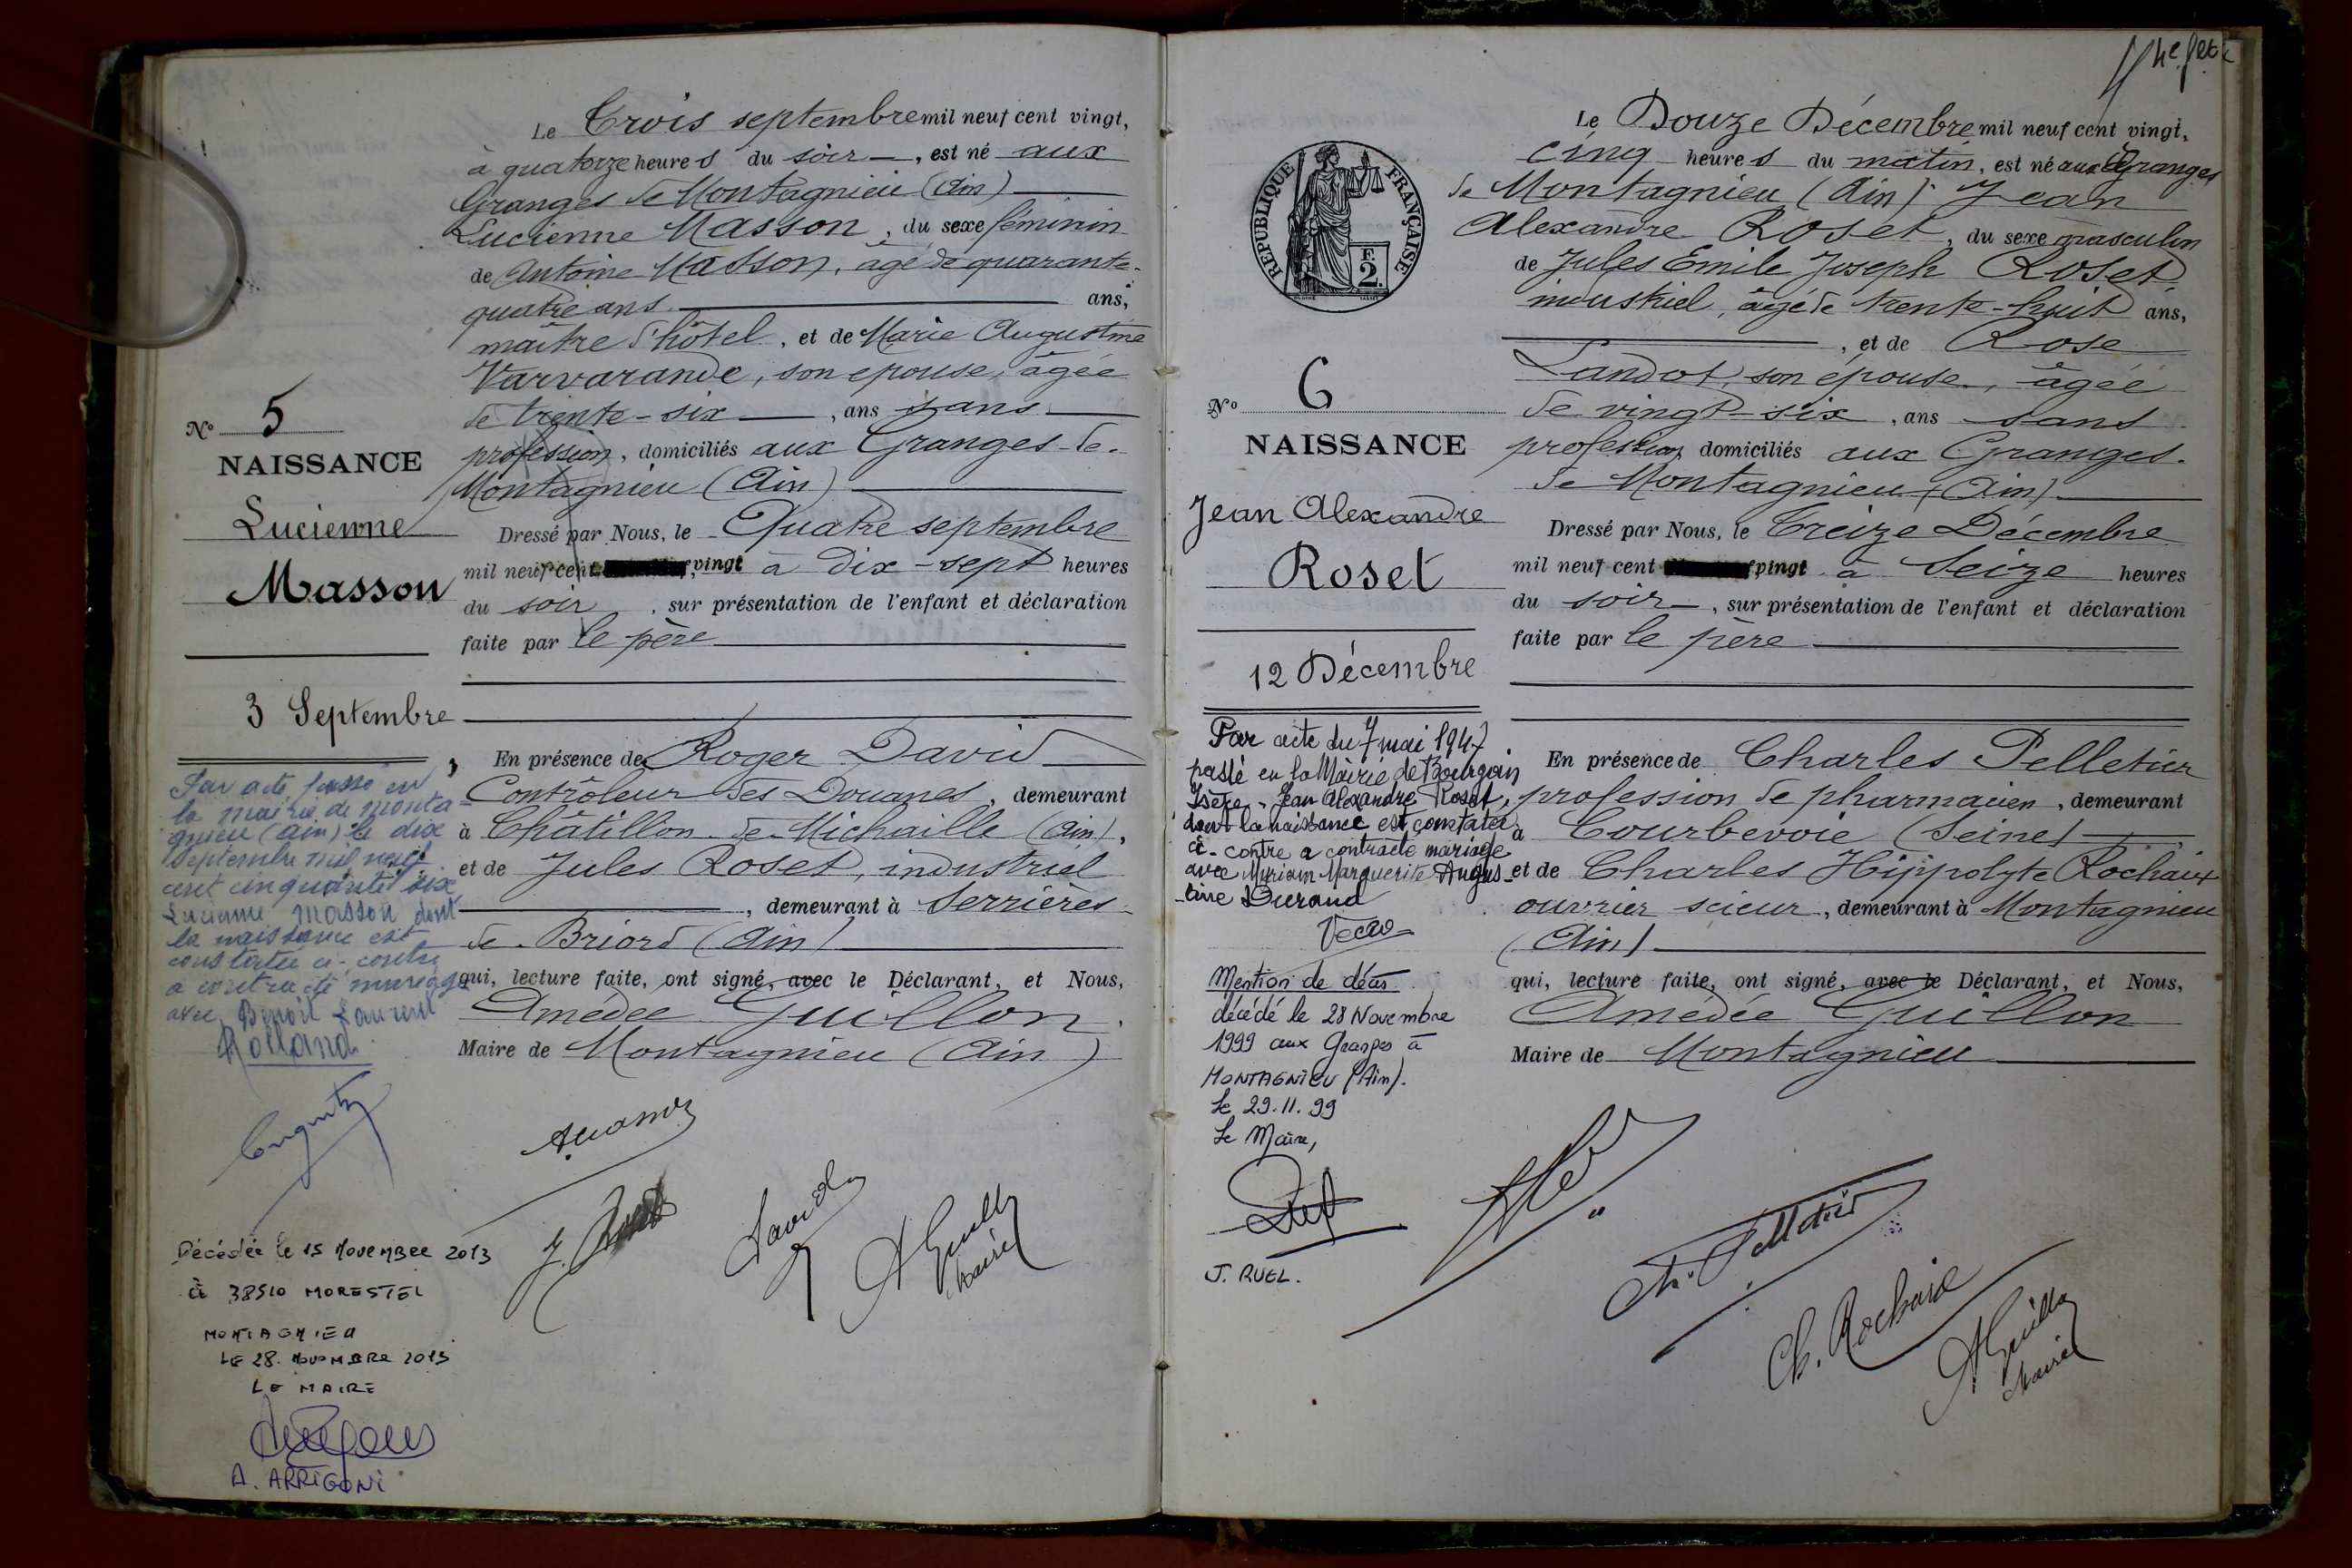 Le Trois septembre mil neuf cent vingt,
à quatorze heures du soir, est né aux
Granges de Montagnieu (Ain)
Lucienne Masson, du sexe féminin
de Antoine Masson, âgé de quarante-
quatre ans ans,
maître d'hôtel, et de Marie Augustine
Varvarande, son épouse, âgée
de trente-six, ans sans
profession, domiciliés aux Granges-de-
Montagnieu (Ain)
Dressé par Nous, le Quatre septembre
mil neuf cent vingt à Dix-sept heures
du soir, sur présentation de l'enfant et déclaration
faite par le père
En présence de Roger David
Contrôleur des Douanes, demeurant
à Châtillon-de-Michaille (Ain),
et de Jules Roset, industriel
, demeurant à Serrières-
de-Briord (Ain)
qui, lecture faite, ont signé, avec le Déclarant, et Nous,
Amédée Guillon,
Maire de Montagnieu (Ain)
J. Roset
David
A Guillon
maire
No 5
NAISSANCE
Lucienne
Masson
3 Septembre
Par acte passé en
la mairie de Monta-
gnieu (Ain) le dix
septembre mil neuf
cent cinquante six
Lucienne Masson dont
la naissance est
constatée ci-contre
a contracté mariage
avec Benoit Laurent
Rolland.
Décédée le 15 Novembre 2013
à 38510 MORESTEL
MONTAGNIEU
LE 28. NOVEMBRE 2013
LE MAIRE
A. ARRIGONI
Le Douze Décembre mil neuf cent vingt,
cinq heures du matin, est né aux Granges
de Montagnieu (Ain) Jean
Alexandre Roset, du sexe masculin
de Jules Emile Joseph Roset,
industriel, âgé de trente-huit ans,
, et de Rose
Landot, son épouse, âgée
de vingt-six, ans sans
profession, domiciliés aux Granges-
de Montagnieu (Ain)
Dressé par Nous, le Treize Décembre
mil neuf cent vingt à Seize heures
du soir, sur présentation de l'enfant et déclaration
faite par le père
En présence de Charles Pelletier
profession de pharmacien, demeurant
à Courbevoie (Seine)
et de Charles Hippolyte Rochaix
ouvrier scieur, demeurant à Montagnieu
(Ain)
qui, lecture faite, ont signé, avec le Déclarant, et Nous,
Amédée Guillon
Maire de Montagnieu
Ch. Pelletier
Ch. Rochaix
A Guillon
maire
RÉPUBLIQUE FRANÇAISE
F.
2.
No 6
NAISSANCE
Jean Alexandre
Roset
12 Décembre
Par acte du 7 mai 1947
passé en la Mairie de Bourgoin
Isère. Jean Alexandre Roset,
dont la naissance est constatée
ci-contre a contracté mariage
avec Myriam Marguerite Augus-
tine Durand
Mention de décès
décédé le 28 Novembre
1999 aux Granges à
MONTAGNIEU (Ain).
Le 29.11.99
Le Maire,
J. RUEL.